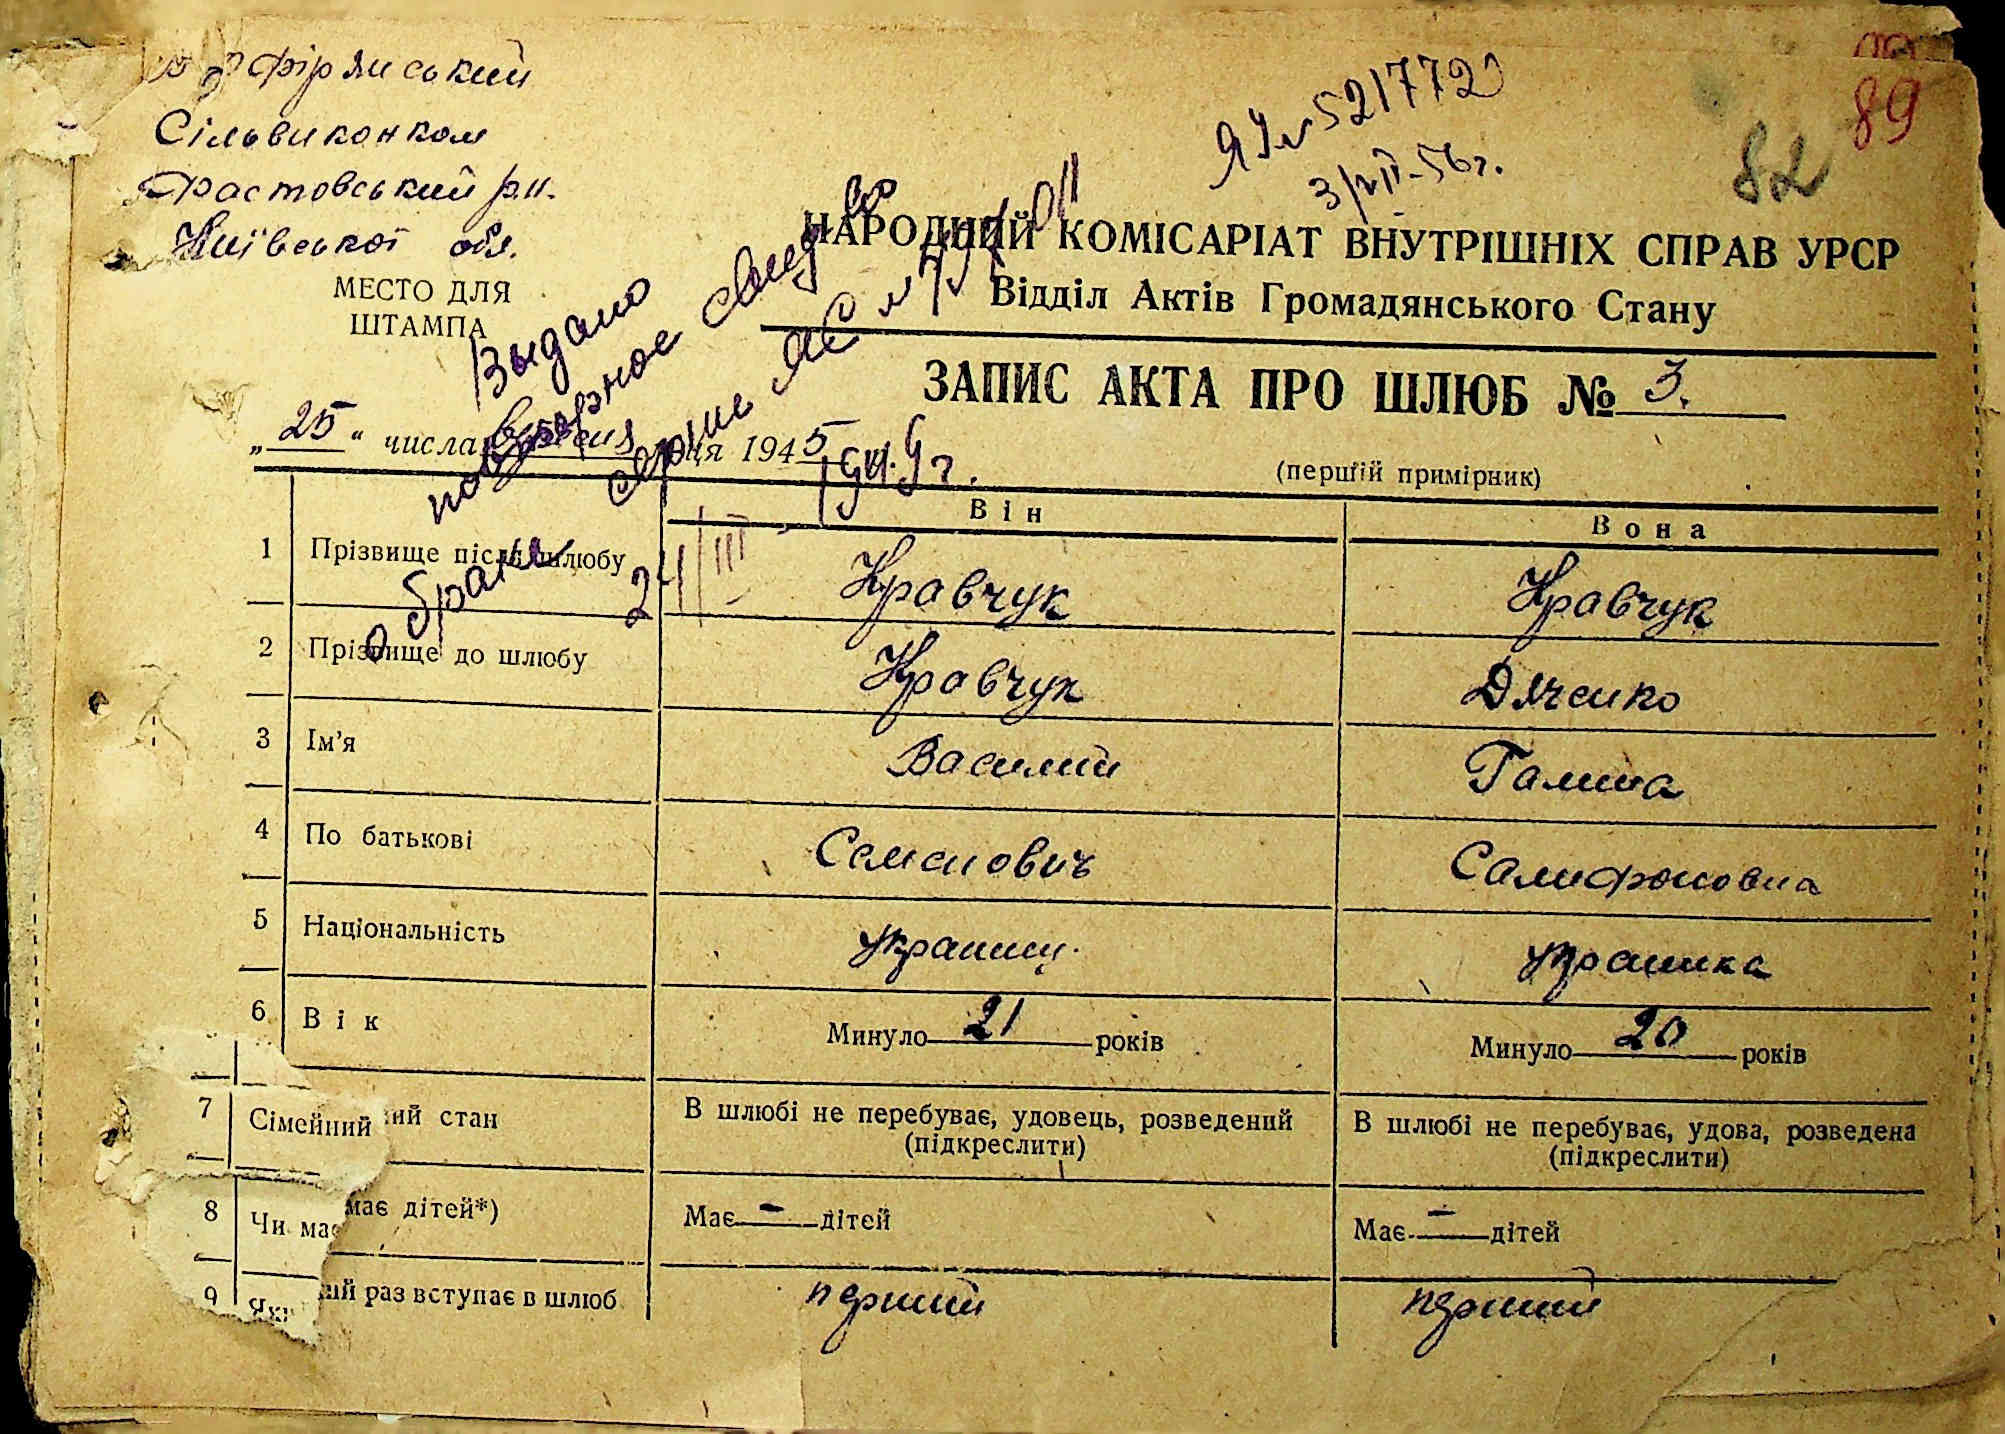 Сільвиконком
Фастовський р.н.
Київської обл.
МЕСТО ДЛЯ
ШТАМПА
ЯУ № 521772
3/VII-56 г.
89
82
НАРОДНИЙ КОМІСАРІАТ ВНУТРІШНІХ СПРАВ УРСР
Відділ Актів Громадянського Стану
Выдано
повторное свид во
о браке серии ЯС №
ЗАПИС АКТА ПРО ШЛЮБ № 3.
„25“ числа 1945
(перший примірник)
Він
Вона
1 Прізвище після шлюбу Кравчук Кравчук
2 Прізвище до шлюбу Кравчук Дяченко
3 Ім'я Василий Галина
4 По батькові Семенович Самифоновна
5 Національність українц. українка
6 Вік Минуло 21 років Минуло 20 років
7 Сімейний стан В шлюбі не перебуває, удовець, розведений В шлюбі не перебуває, удова, розведена
(підкреслити) (підкреслити)
8 Чи має дітей*) Має — дітей Має — дітей
9 раз вступає в шлюб перший перший